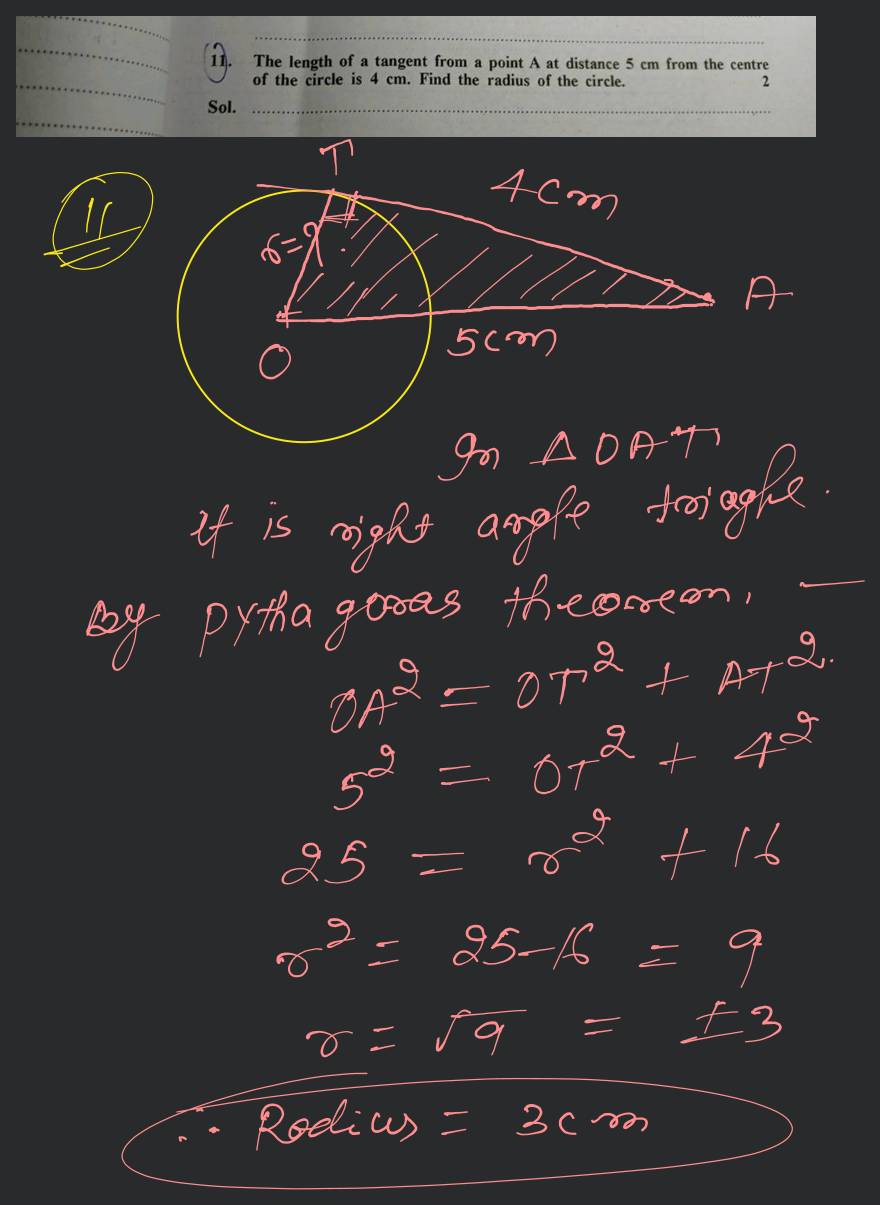 11. The length of a tangent from a point A at distance 5 cm from the centre
of the circle is 4 cm. Find the radius of the circle. 2
Sol.
11
T
4cm
r=?
A
5cm
O
In Δ OAT
It is right angle triangle.
By pythagoras theorem, —
OA² = OT² + AT².
5² = OT² + 4²
25 = r² + 16
r² = 25-16 = 9
r = √9 = ±3
∴ Radius = 3cm